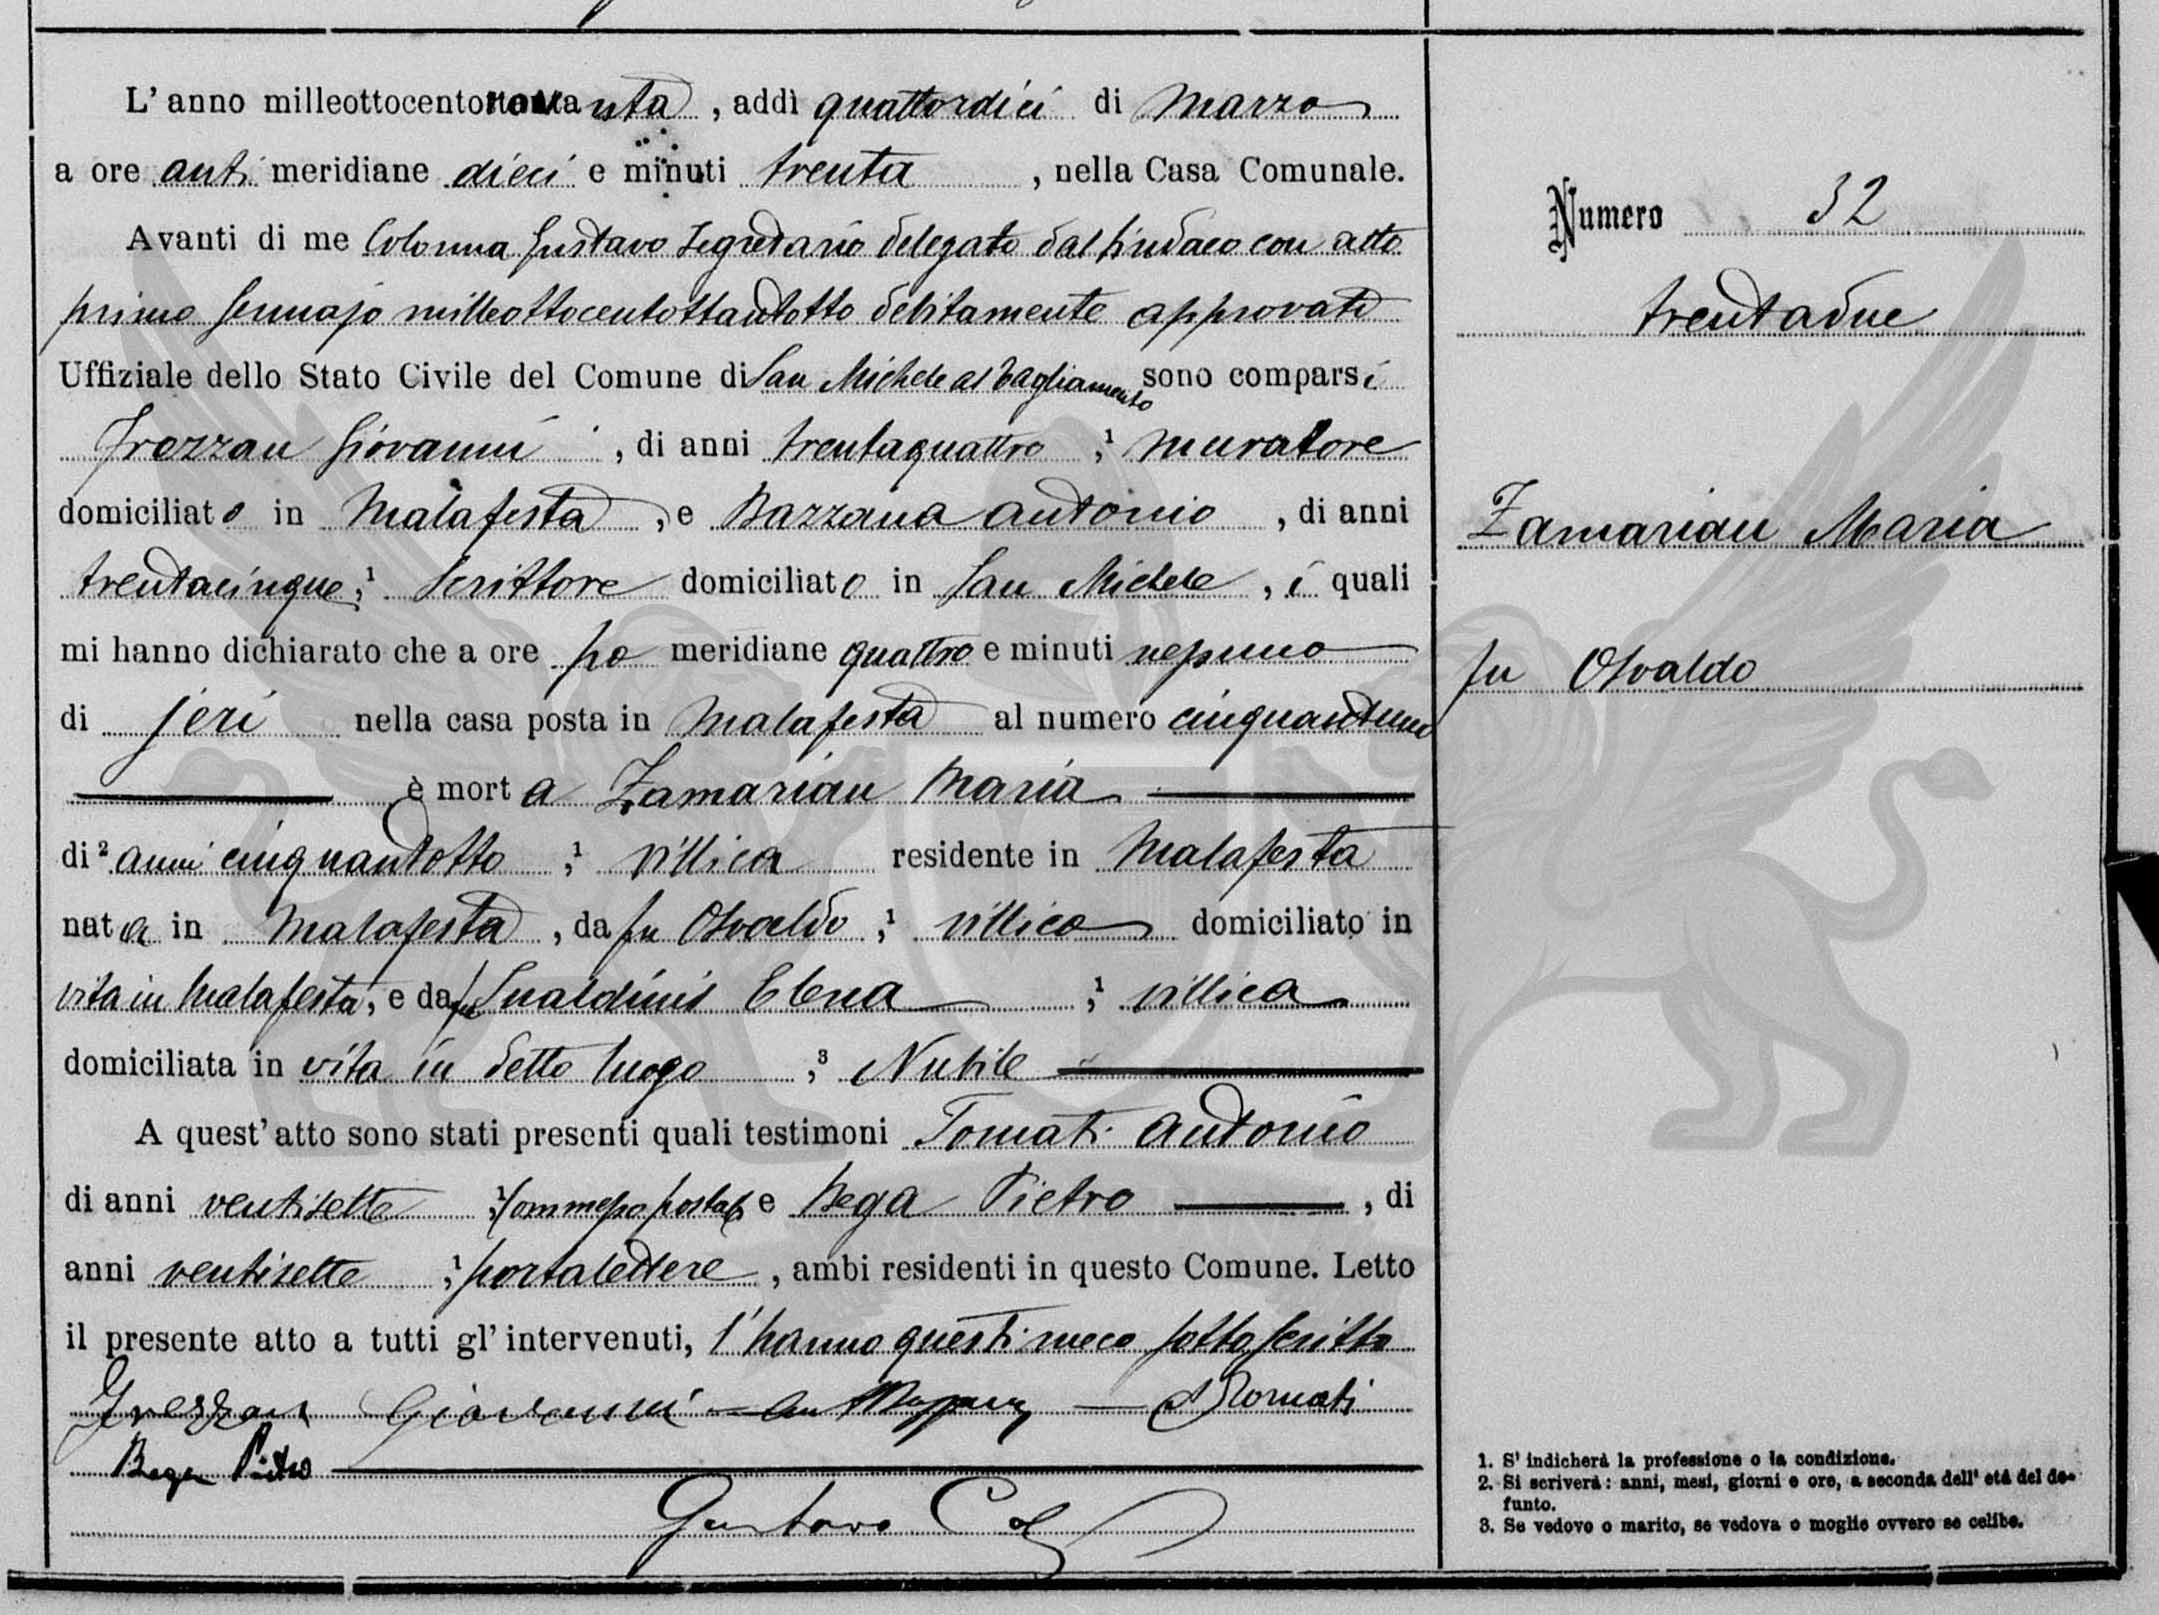 L'anno milleottocentonovanta, addì quattordici di Marzo
a ore anti meridiane dieci e minuti trenta, nella Casa Comunale.
Avanti di me Colonna Gustavo Segretario delegato dal Sindaco con atto
primo Gennajo milleottocentottantotto debitamente approvato
Uffiziale dello Stato Civile del Comune di San Michele al Tagliamento sono comparsi
Frezzan Giovanni, di anni trentaquattro, ¹ muratore
domiciliato in Malafesta, e Bazzana Antonio, di anni
trentacinque, ¹ Scrittore domiciliato in San Michele, i quali
mi hanno dichiarato che a ore po meridiane quattro e minuti nessuno
di jeri nella casa posta in Malafesta al numero cinquantuno
è morta Zamarian Maria
di ² anni cinquantotto, ¹ villica residente in Malafesta
nata in Malafesta, da fu Osvaldo, ¹ villico domiciliato in
vita in Malafesta, e da fu Gualdinis Elena, ¹ villica
domiciliata in vita in detto luogo, ³ Nubile
A quest'atto sono stati presenti quali testimoni Tomati Antonio
di anni ventisette, ¹ Commesso postale e Bega Pietro, di
anni ventisette, ¹ portalettere, ambi residenti in questo Comune. Letto
il presente atto a tutti gl'intervenuti, l'hanno questi meco sottoscritto
Frezzan Giovanni - A Tomati
Bega Pietro
Gustavo Col
Numero 32
trentadue
Zamarian Maria
fu Osvaldo
1. S'indicherà la professione o la condizione.
2. Si scriverà: anni, mesi, giorni e ore, a seconda dell'età del de-
funto.
3. Se vedovo o marito, se vedova o moglie ovvero se celibe.